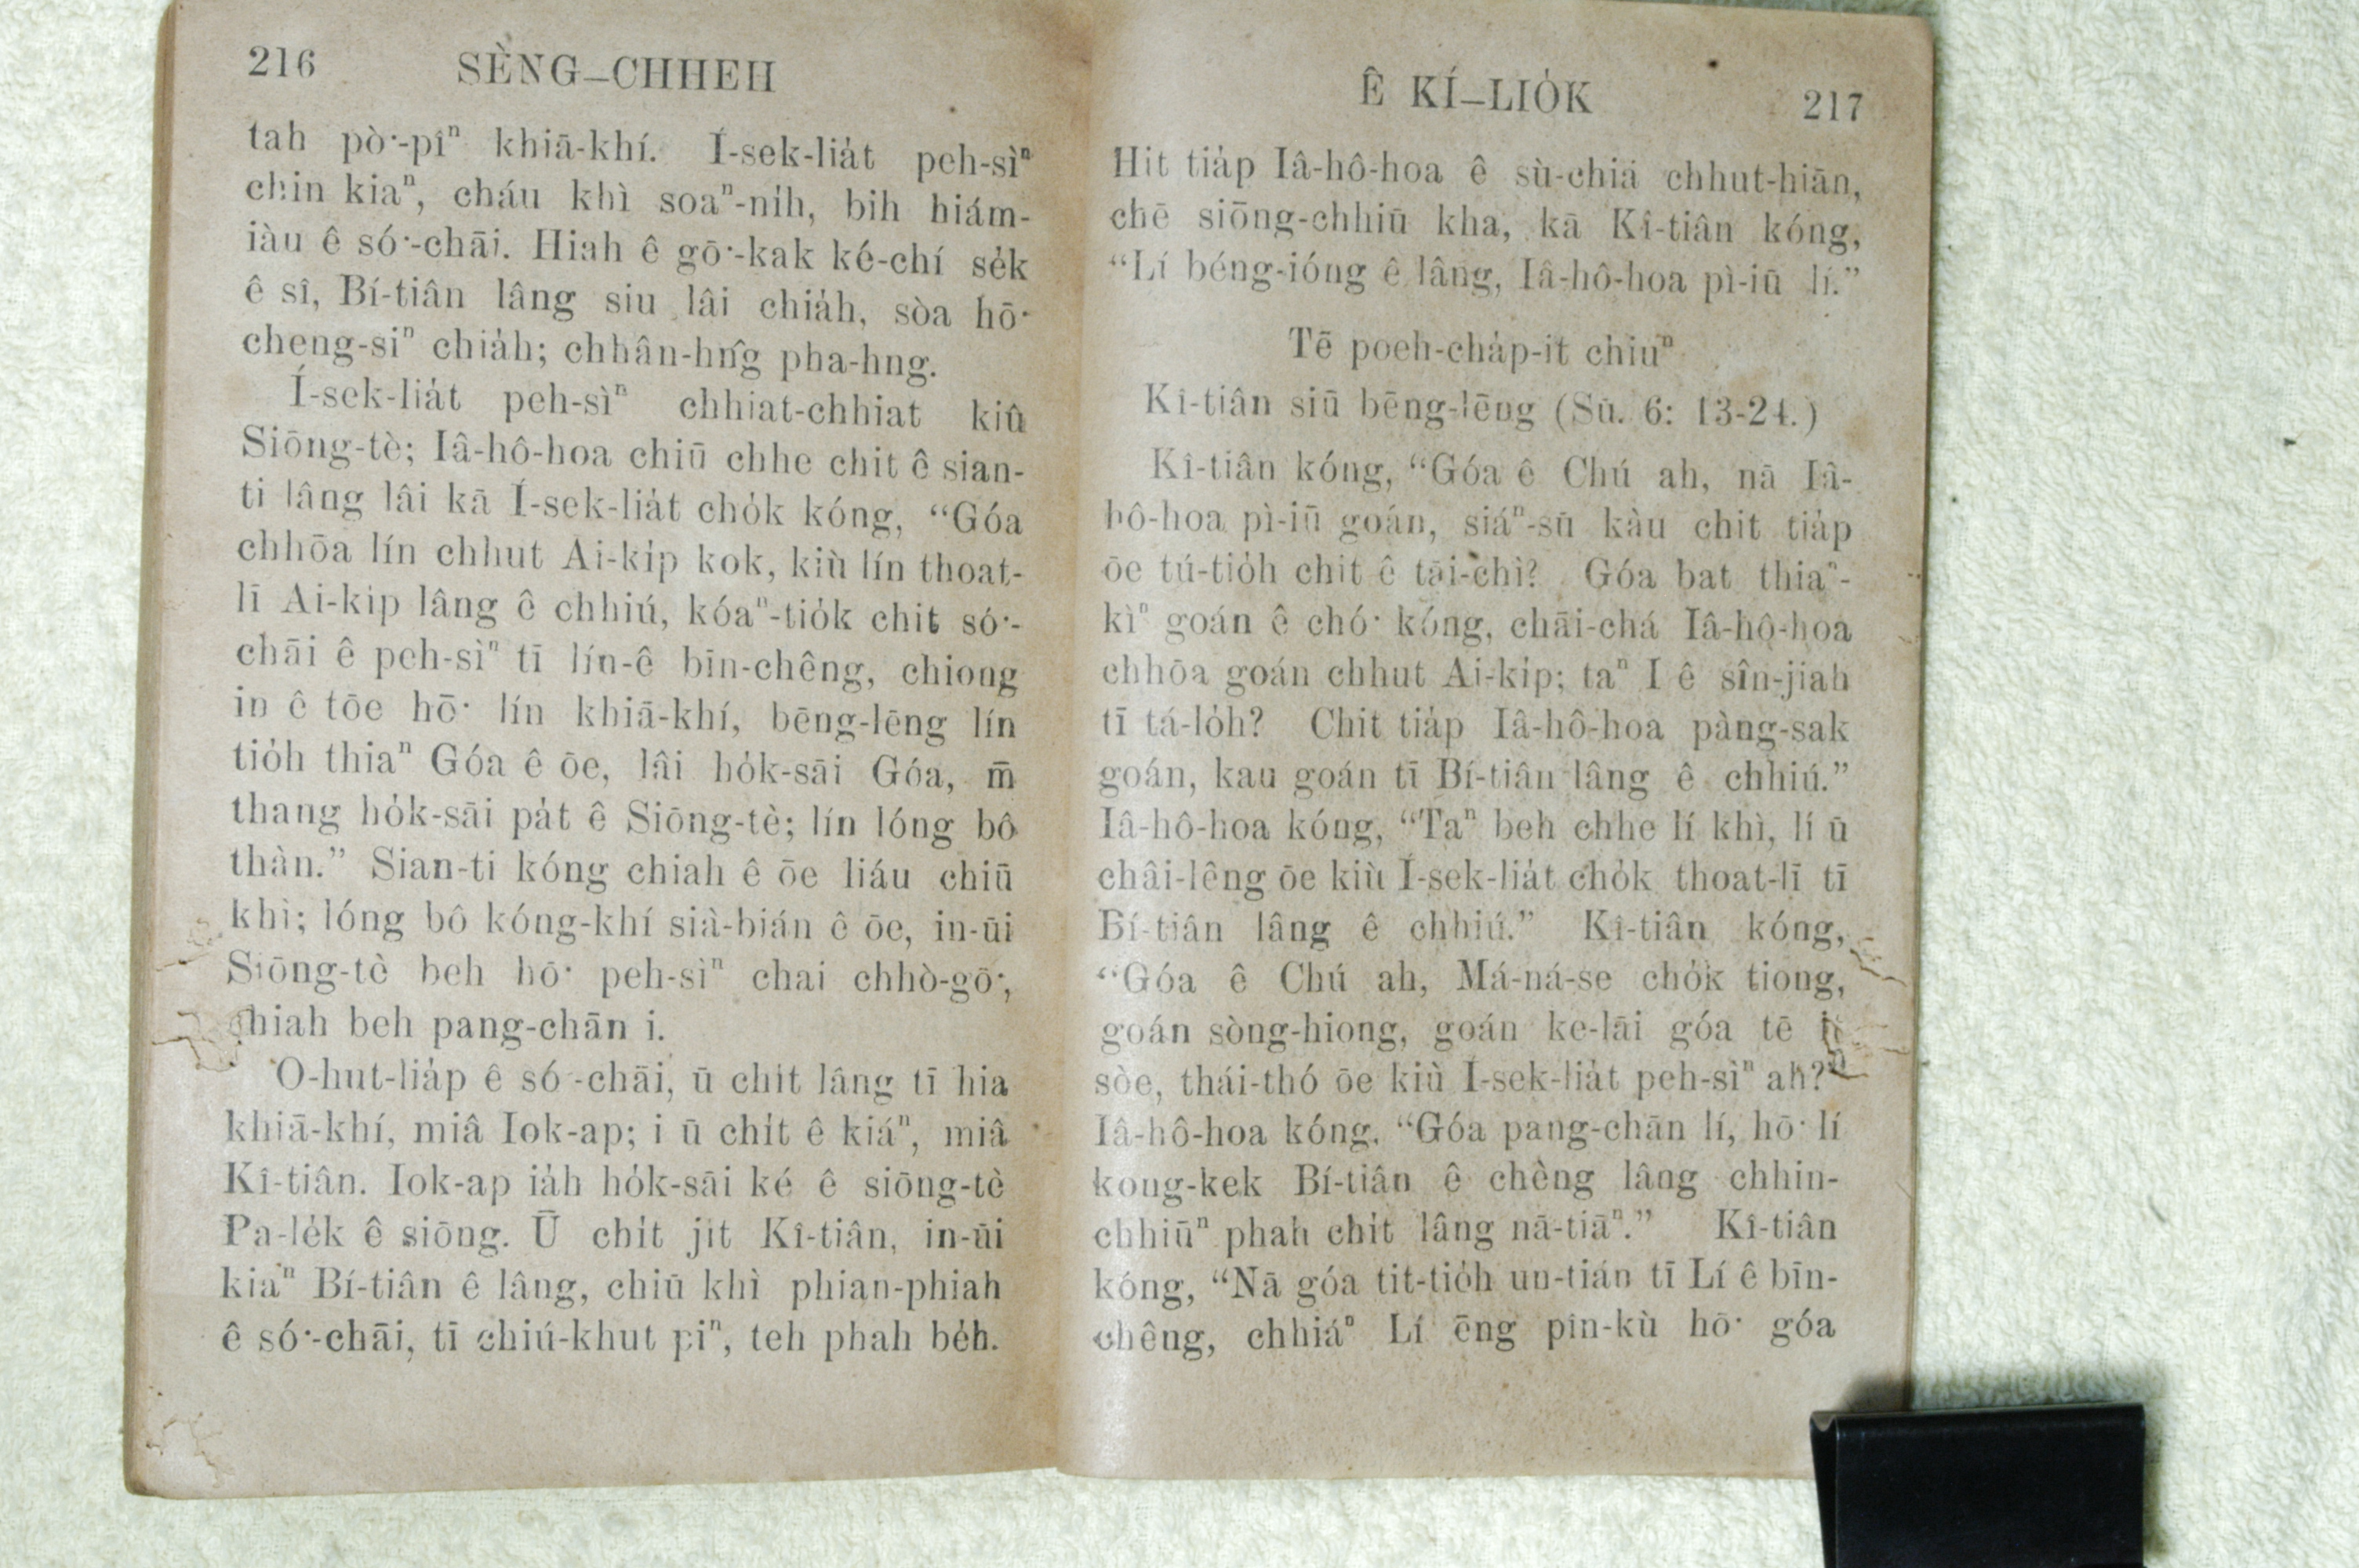 216 SÈNG–CHHEH
tah pò͘-pîⁿ khiā-khí. Í-sek-lia̍t peh-sìⁿ
chin kiaⁿ, cháu khì soaⁿ-ni̍h, bih hiám-
iàu ê só͘-chāi. Hiah ê gō͘-kak ké-chí se̍k
ê sî, Bí-tiân lâng siu lâi chia̍h, sòa hō͘
cheng-siⁿ chia̍h; chhân-hn̂g pha-hng.
Í-sek-lia̍t peh-sìⁿ chhiat-chhiat kiû
Siōng-tè; Iâ-hô-hoa chiū chhe chit ê sian-
ti lâng lâi kā Í-sek-lia̍t cho̍k kóng, “Góa
chhōa lín chhut Ai-ki̍p kok, kiù lín thoat-
lī Ai-kip lâng ê chhiú, kóaⁿ-tio̍k chit só͘-
chāi ê peh-sìⁿ tī lín-ê bīn-chêng, chiong
in ê tōe hō͘ lín khiā-khí, bēng-lēng lín
tio̍h thiaⁿ Góa ê ōe, lâi ho̍k-sāi Góa, m̄
thang ho̍k-sāi pa̍t ê Siōng-tè; lín lóng bô
thàn.” Sian-ti kóng chiah ê ōe liáu chiū
khì; lóng bô kóng-khí sià-bián ê ōe, in-ūi
Siōng-tè beh hō͘ peh-sìⁿ chai chhò-gō͘,
chiah beh pang-chān i.
O-hut-lia̍p ê só͘-chāi, ū chi̍t lâng tī hia
khiā-khí, miâ Iok-ap; i ū chi̍t ê kiáⁿ, miâ
Kî-tiân. Iok-ap ia̍h ho̍k-sāi ké ê siōng-tè
Pa-le̍k ê siōng. Ū chi̍t jit Kî-tiân, in-ūi
kiaⁿ Bí-tiân ê lâng, chiū khì phian-phiah
ê só͘-chāi, tī chiú-khut piⁿ, teh phah be̍h.
Ê KÍ–LIO̍K 217
Hit tia̍p Iâ-hô-hoa ê sù-chiá chhut-hiān,
chē siōng-chhiū kha, kā Kî-tiân kóng,
“Lí béng-ióng ê lâng, Iâ-hô-hoa pì-iū lí.”
Tē poeh-cha̍p-it chiuⁿ
Kî-tiân siū bēng-lēng (Sū. 6: 13-24.)
Kî-tiân kóng, “Góa ê Chú ah, nā Iâ-
hô-hoa pì-iū goán, siáⁿ-sū kàu chit tia̍p
ōe tú-tio̍h chit ê tāi-chì? Góa bat thiaⁿ-
kìⁿ goán ê chó͘ kóng, chāi-chá Iâ-hô-hoa
chhōa goán chhut Ai-ki̍p; taⁿ I ê sîn-jiah
tī tá-lo̍h? Chit tia̍p Iâ-hô-hoa pàng-sak
goán, kau goán tī Bí-tiân lâng ê chhiú.”
Iâ-hô-hoa kóng, “Taⁿ beh chhe lí khì, lí ū
châi-lêng ōe kiù Í-sek-lia̍t cho̍k thoat-lī tī
Bí-tiân lâng ê chhiú.” Kî-tiân kóng,
“Góa ê Chú ah, Má-ná-se cho̍k tiong,
goán sòng-hiong, goán ke-lāi góa tē
sòe, thái-thó ōe kiù Í-sek-lia̍t peh-sìⁿ ah?”
Iâ-hô-hoa kóng, “Góa pang-chān lí, hō͘ lí
kong-kek Bí-tiân ê chèng lâng chhin-
chhiūⁿ phah chi̍t lâng nā-tiāⁿ.” Kî-tiân
kóng, “Nā góa tit-tio̍h un-tián tī Lí ê bīn-
chêng, chhiáⁿ Lí ēng pîn-kù hō͘ góa